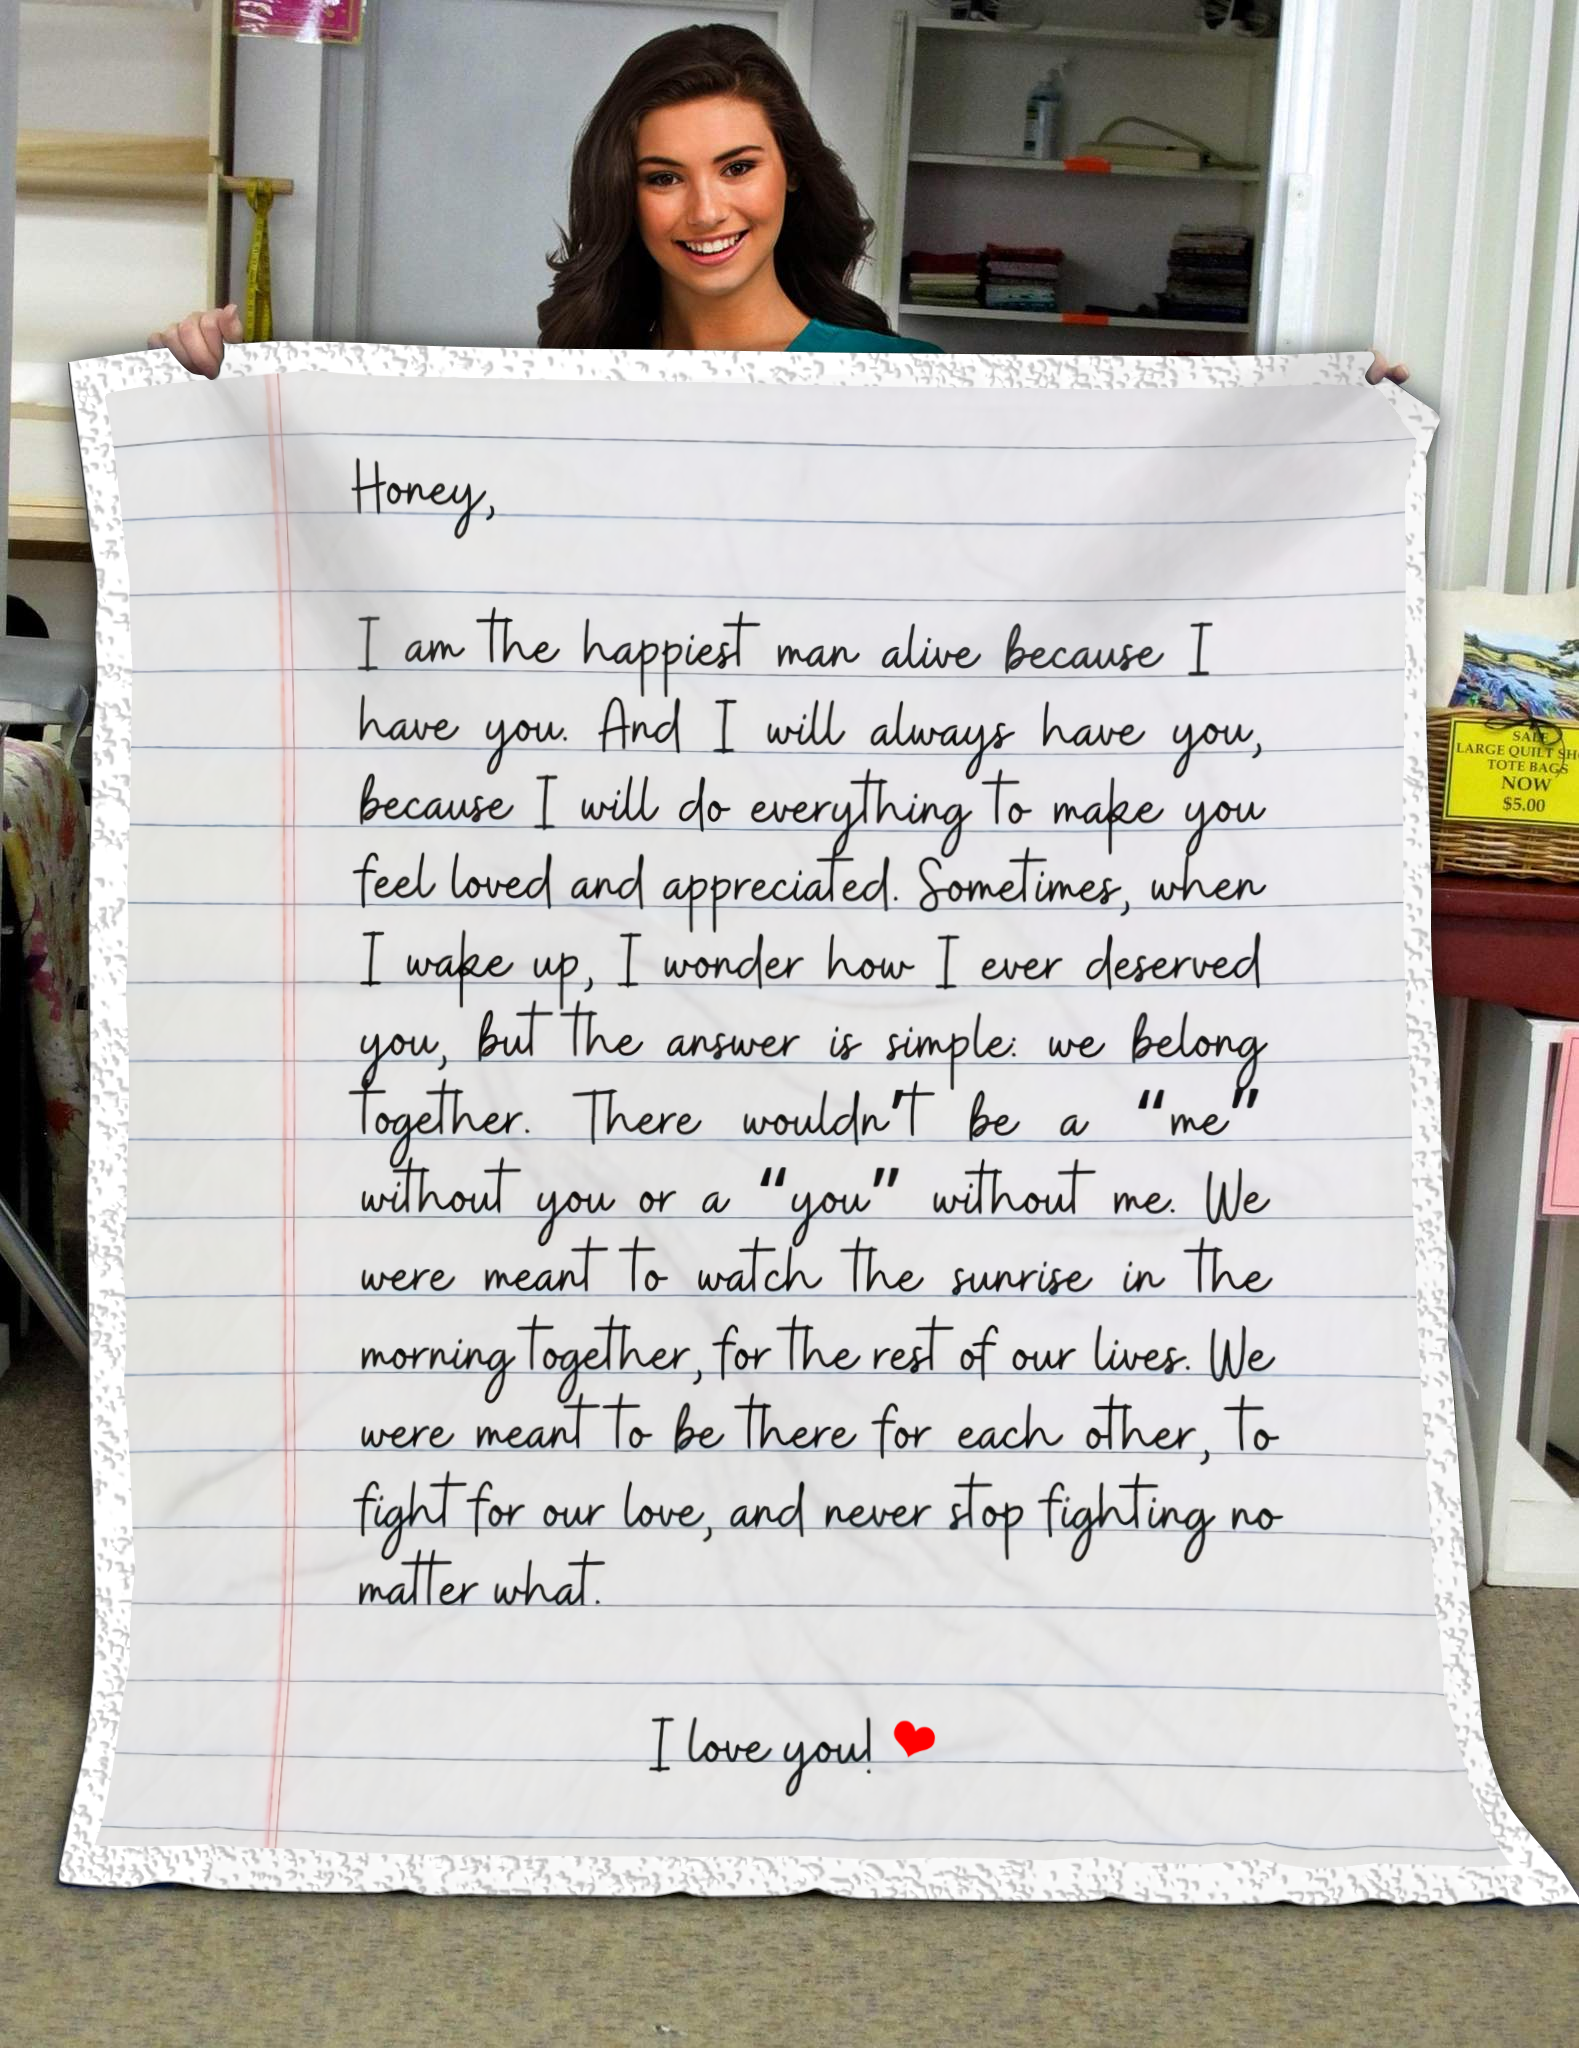 Honey,
I am the happiest man alive because I
have you. And I will always have you,
because I will do everything to make you
feel loved and appreciated. Sometimes, when
I wake up, I wonder how I ever deserved
you, but the answer is simple: we belong
together. There wouldn't be a “me”
without you or a “you” without me. We
were meant to watch the sunrise in the
morning together, for the rest of our lives. We
were meant to be there for each other, to
fight for our love, and never stop fighting no
matter what.
I love you! ❤
SALE
LARGE QUILT SH
TOTE BAGS
NOW
$5.00